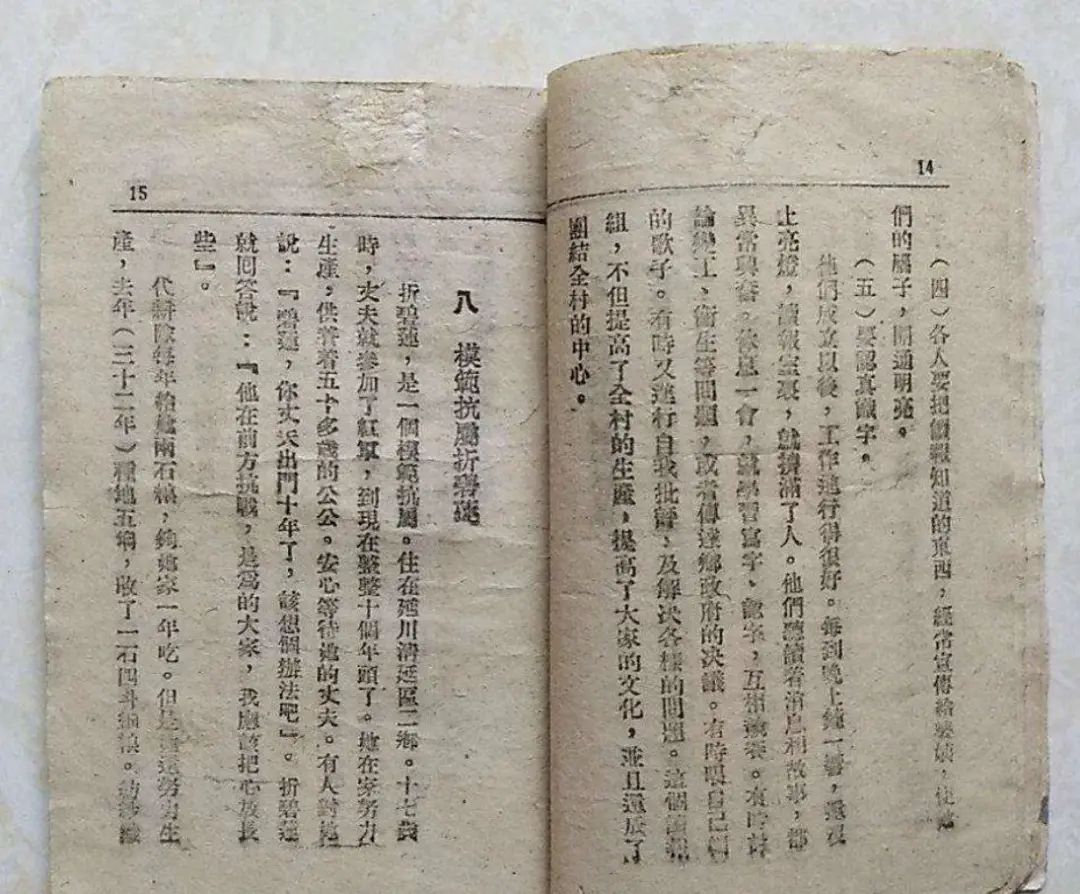 14
（四）各人要把讀報知道的東西，經常宣傳給婆姨，使他
們的腦子，開通明亮。
（五）要認真識字。
他們成立以後，工作進行得很好。每到晚上鐘一響，還沒
上亮燈，讀報室裏，就擠滿了人。他們聽讀着消息和故事，都
異常興奮。休息一會，就學習寫字、認字，互相競賽。有時討
論變工、衞生等問題，或者傳達鄉政府的決議。有時唱自己編
的歌子。有時又進行自我批評，及解決各樣的問題。這個讀報
組，不但提高了全村的生產，提高了大家的文化，並且還成了
團結全村的中心。
15
八 模範抗屬折碧蓮
折碧蓮，是一個模範抗屬。住在延川清延區二鄉。十七歲
時，丈夫就參加了紅軍，到現在整整十個年頭了。她在家努力
生產，供養着五十多歲的公公。安心等待她的丈夫。有人對她
說：『碧蓮，你丈夫出門十年了，該想個辦法吧』。折碧蓮
就回答說：『他在前方抗戰，是爲的大家，我應該把心放長
些』。
代耕隊每年給她兩石糧，夠她家一年吃。但是她還努力生
產，去年（三十二年）種地五垧，收了一石四斗細糧。紡紗織